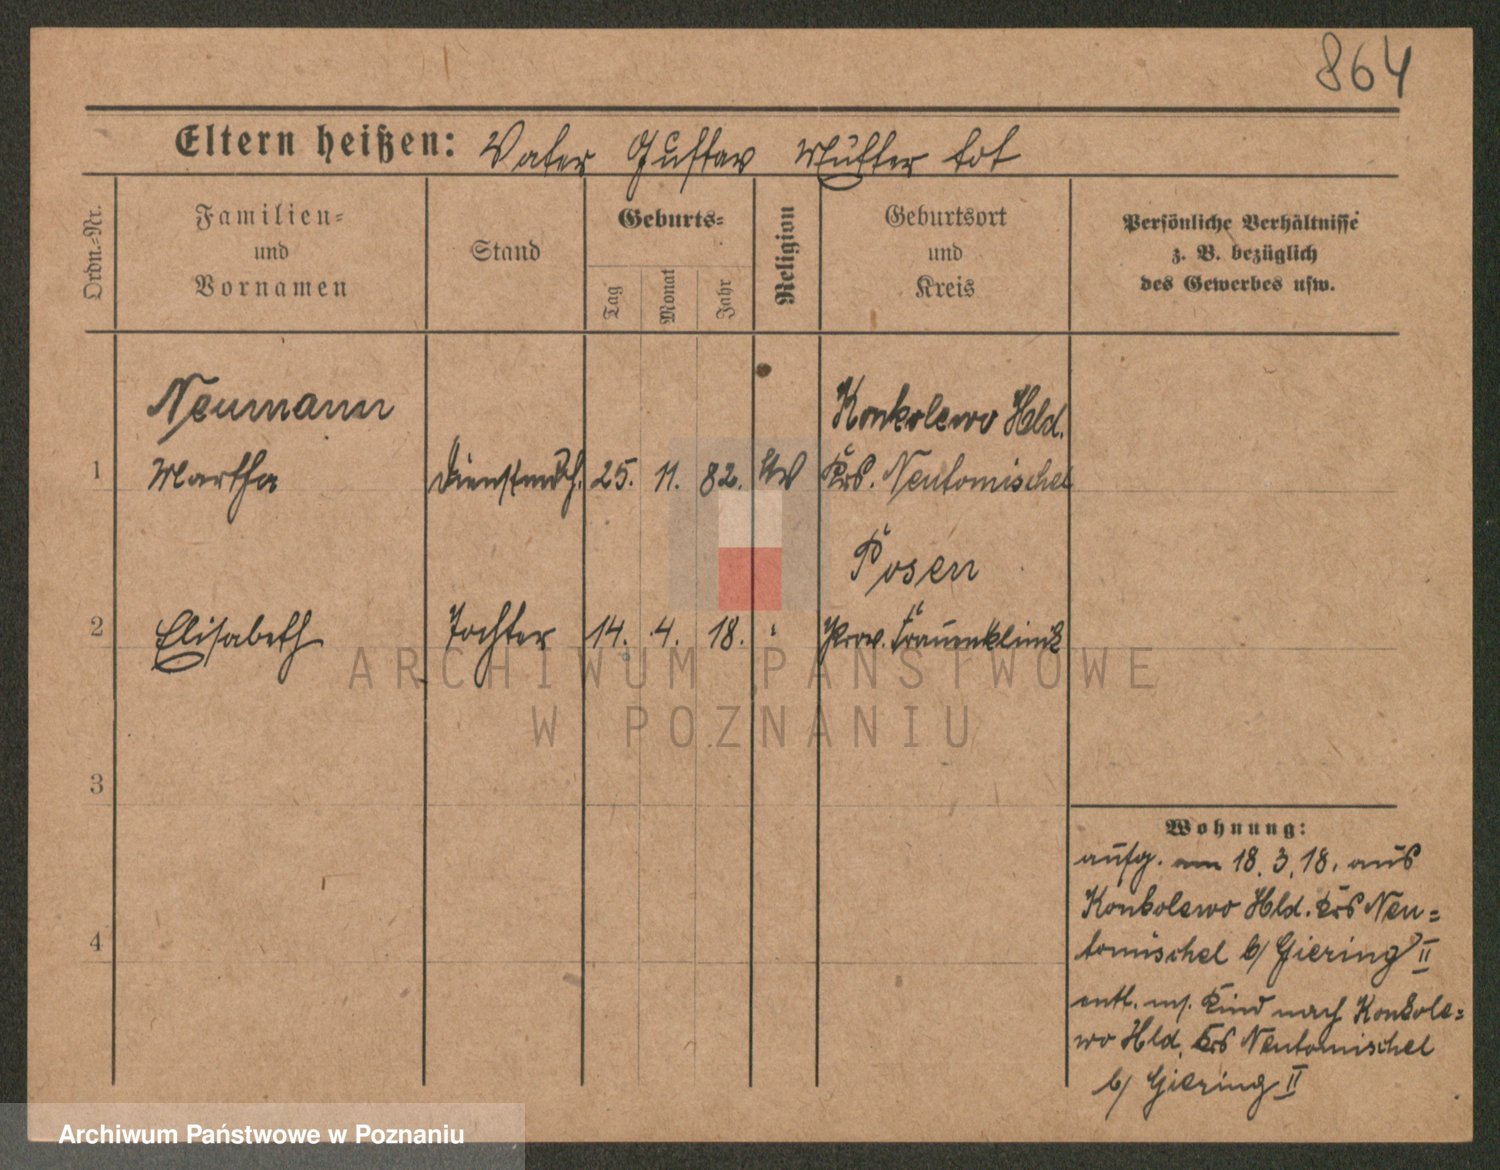 864
Eltern heißen: Vater Gustav Mutter tot
Ordn.=Nr.
Familien=
und
Vornamen
Stand
Geburts=
Tag
Monat
Jahr
Religion
Geburtsort
und
Kreis
Persönliche Verhältnisse
z. B. bezüglich
des Gewerbes usw.
Neumann
Konkolewo Hld.
1 Martha Dienstmdch. 25. 11. 82. Krs. Neutomischel
Posen
2 Elisabeth Tochter 14. 4. 18. Prov. Frauenklinik
ARCHIWUM PAŃSTWOWE
W POZNANIU
3
Wohnung:
aufg. am 18.3.18. aus
Konkolewo Hld. Krs Neu=
tomischel b/ Giering II
4
entl. m/. Kind nach Konkole=
wo Hld. Krs Neutomischel
b/ Giering II
Archiwum Państwowe w Poznaniu